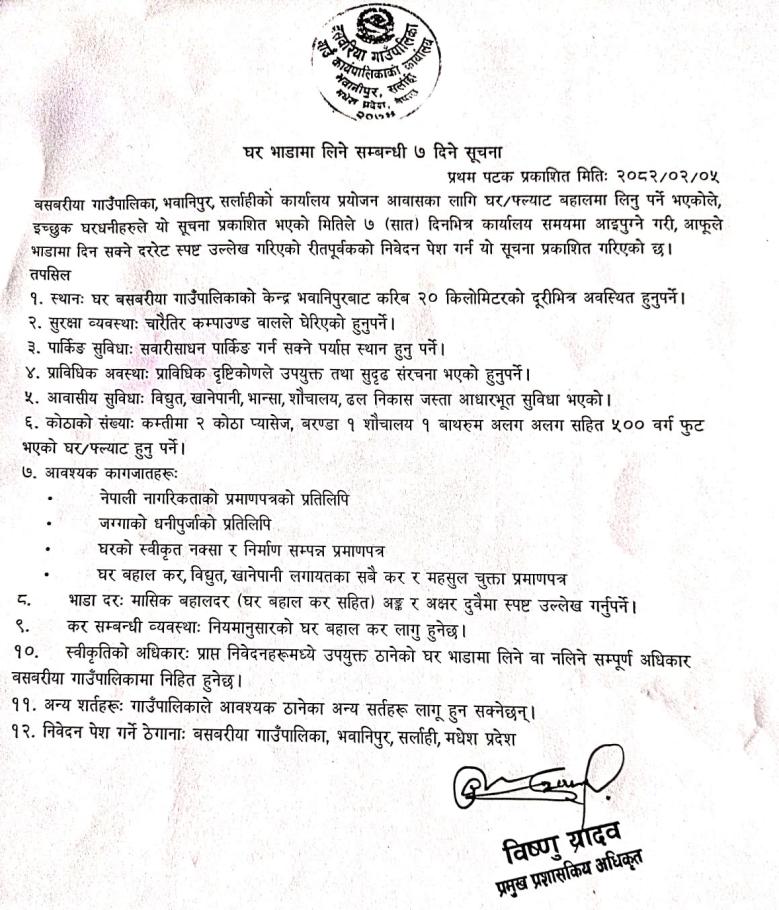 बसबरिया गाउँपालिका
गाउँ कार्यपालिकाको कार्यालय
भवानीपुर, सर्लाही
मधेश प्रदेश, नेपाल
२०७४
घर भाडामा लिने सम्बन्धी ७ दिने सूचना
प्रथम पटक प्रकाशित मितिः २०८२/०२/०५
बसबरीया गाउँपालिका, भवानिपुर, सर्लाहीको कार्यालय प्रयोजन आवासका लागि घर/फ्ल्याट बहालमा लिनु पर्ने भएकोले,
इच्छुक घरधनीहरुले यो सूचना प्रकाशित भएको मितिले ७ (सात) दिनभित्र कार्यालय समयमा आइपुग्ने गरी, आफूले
भाडामा दिन सक्ने दररेट स्पष्ट उल्लेख गरिएको रीतपूर्वकको निवेदन पेश गर्न यो सूचना प्रकाशित गरिएको छ।
तपसिल
१. स्थानः घर बसबरीया गाउँपालिकाको केन्द्र भवानिपुरबाट करिब २० किलोमिटरको दूरीभित्र अवस्थित हुनुपर्ने।
२. सुरक्षा व्यवस्थाः चारैतिर कम्पाउण्ड वालले घेरिएको हुनुपर्ने।
३. पार्किङ सुविधाः सवारीसाधन पार्किङ गर्न सक्ने पर्याप्त स्थान हुनु पर्ने।
४. प्राविधिक अवस्थाः प्राविधिक दृष्टिकोणले उपयुक्त तथा सुदृढ संरचना भएको हुनुपर्ने।
५. आवासीय सुविधाः विद्युत, खानेपानी, भान्सा, शौचालय, ढल निकास जस्ता आधारभूत सुविधा भएको।
६. कोठाको संख्याः कम्तीमा २ कोठा प्यासेज, बरण्डा १ शौचालय १ बाथरुम अलग अलग सहित ५०० वर्ग फुट
भएको घर/फ्ल्याट हुनु पर्ने।
७. आवश्यक कागजातहरूः
• नेपाली नागरिकताको प्रमाणपत्रको प्रतिलिपि
• जग्गाको धनीपुर्जाको प्रतिलिपि
• घरको स्वीकृत नक्सा र निर्माण सम्पन्न प्रमाणपत्र
• घर बहाल कर, विद्युत, खानेपानी लगायतका सबै कर र महसुल चुक्ता प्रमाणपत्र
८. भाडा दरः मासिक बहालदर (घर बहाल कर सहित) अङ्क र अक्षर दुवैमा स्पष्ट उल्लेख गर्नुपर्ने।
९. कर सम्बन्धी व्यवस्थाः नियमानुसारको घर बहाल कर लागु हुनेछ।
१०. स्वीकृतिको अधिकारः प्राप्त निवेदनहरूमध्ये उपयुक्त ठानेको घर भाडामा लिने वा नलिने सम्पूर्ण अधिकार
बसबरीया गाउँपालिकामा निहित हुनेछ।
११. अन्य शर्तहरूः गाउँपालिकाले आवश्यक ठानेका अन्य सर्तहरू लागू हुन सक्नेछन्।
१२. निवेदन पेश गर्ने ठेगानाः बसबरीया गाउँपालिका, भवानिपुर, सर्लाही, मधेश प्रदेश
विष्णु यादव
प्रमुख प्रशासकिय अधिकृत